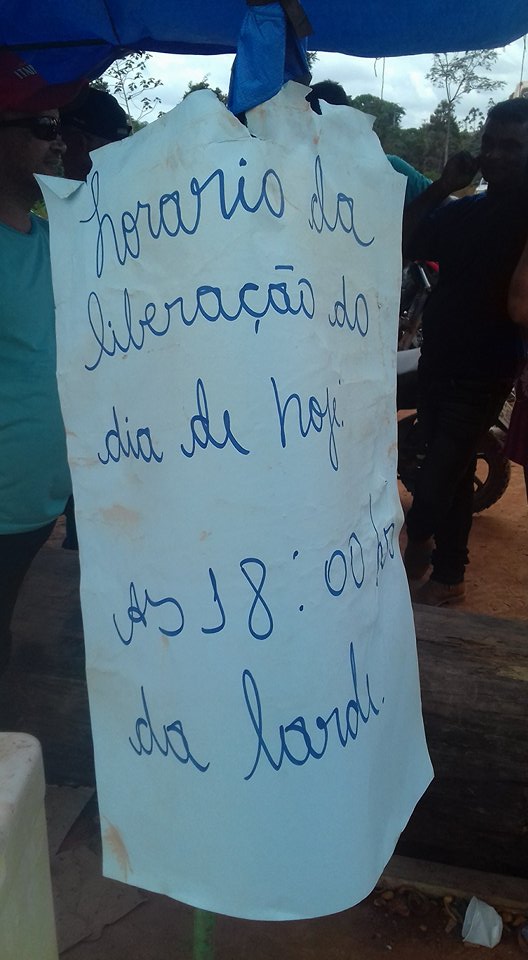 horario da
liberação do
dia de hoje.
As 18:00 hr
da tarde.